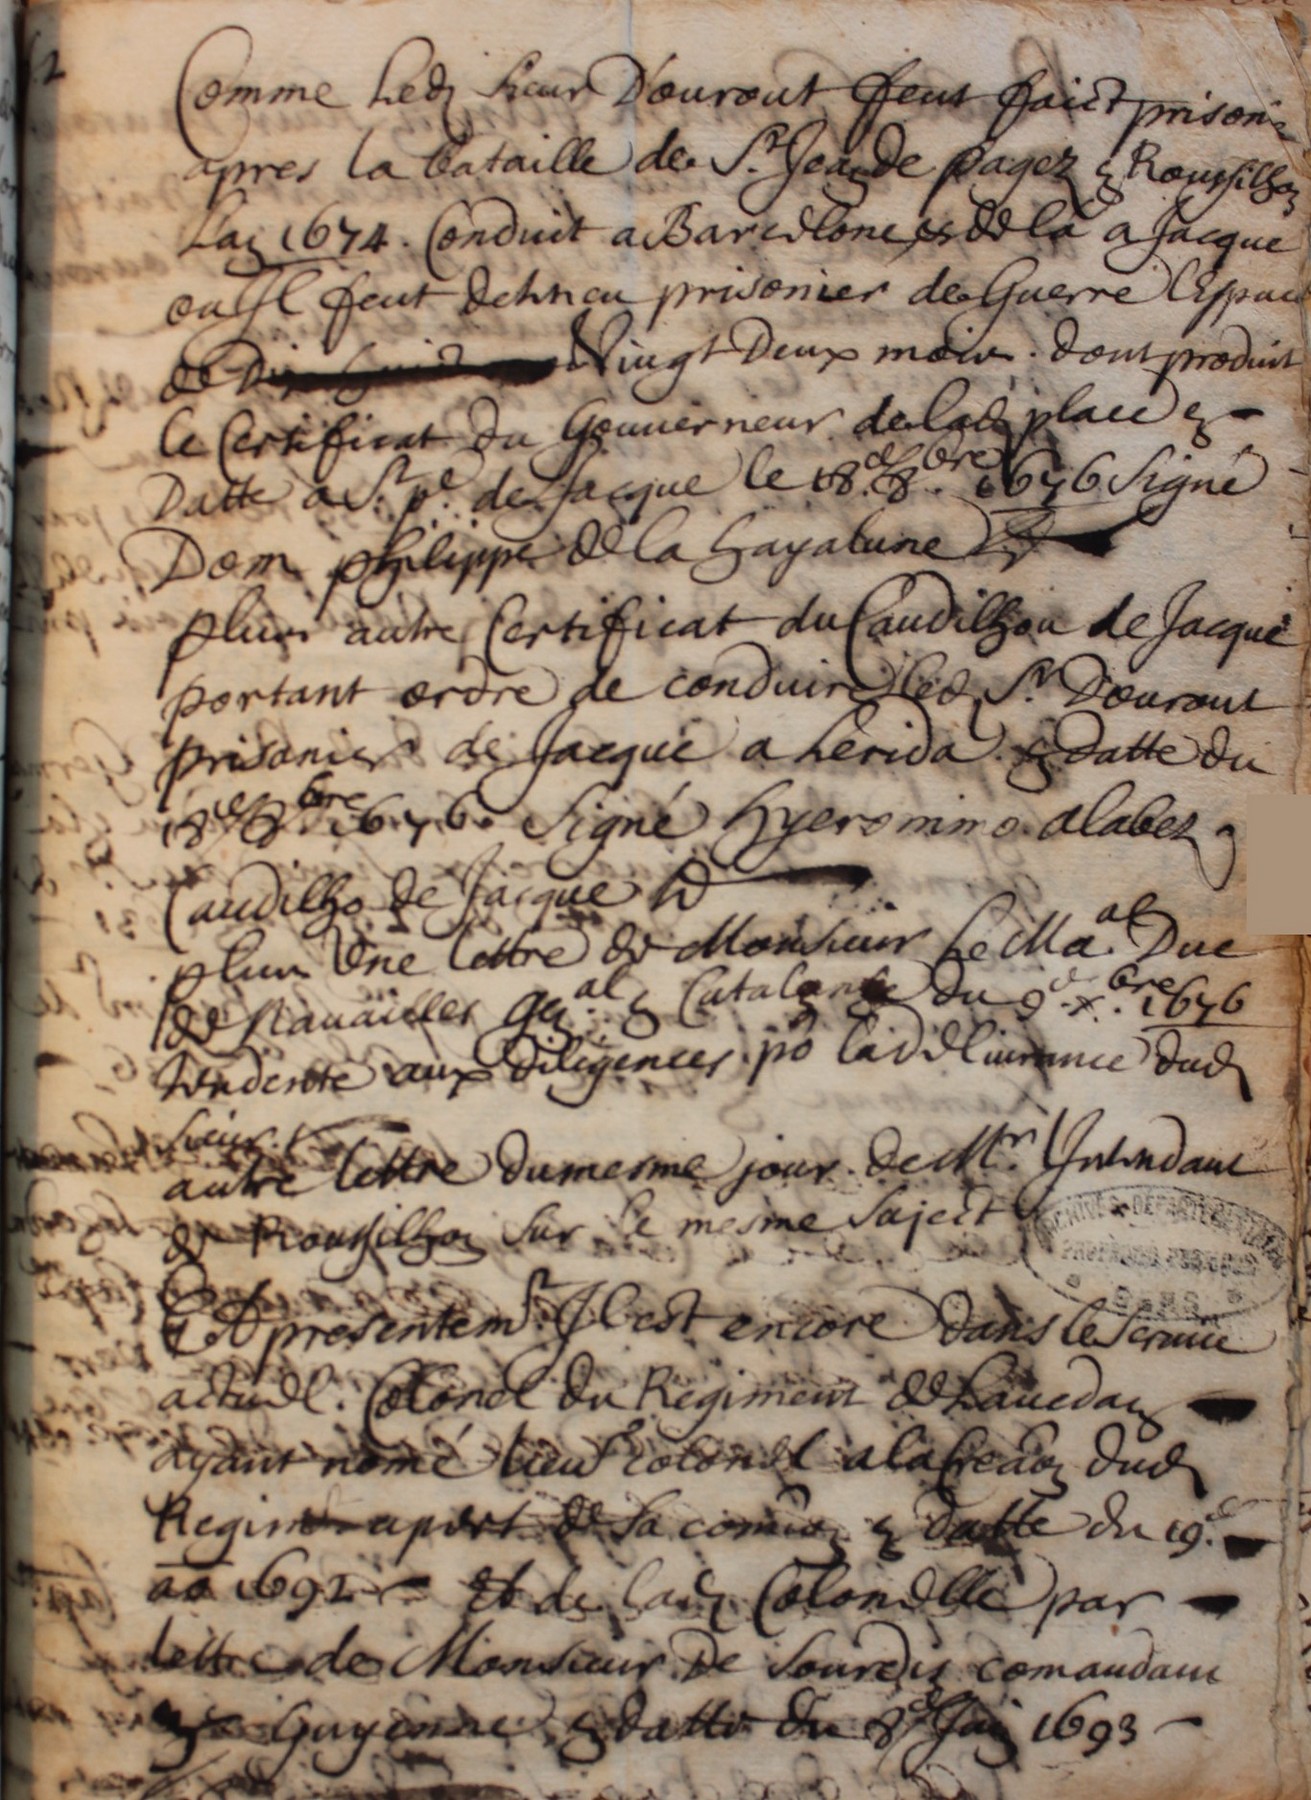 Comme Led Sieur Dourout feut faict prison.
apres la bataille de St. Jean de pagez en Roussilhon
Lan 1674. Conduit a Barcelone, et de la a Jacque
ou Il feut detteneu prisonier de Guerre l'Espace
de Dix huict Vingt Deux mois. dont produit
le Certificat du Gouuerneur de lad place en
Datte a St. pe. de Jacque le 18e. 8bre 1676 Signé
Dom philippe de la hayalune
plus autre Certificat du Caudilhou de Jacque
portant ordre de conduire led Sr. Dourout
prisonier de Jacque a Lerida en datte du
18e 8bre 1676. Signé hyeronimo alabez
Caudilho de Jacque
plus Une lettre de Monsieur Le Maal. Duc
de Nauailles genal. en Catalongne du 9e xbre. 1676
tendente aux diligences po la deliurance dud
Sieur.
autre lettre du mesme jour. de Mr. l'Intendant
de Roussilhon Sur le mesme Sujeict
Et presentemt. Il est encore dans le Seruice
actuel. Colonel du Regiment de Lauedan
ayant nomé lieut colonel a la creaon dud
Regimt apert de sa comion en datte du 19e.
ao 1692 Et de lad Colonelle par
lettre de Monsieur De Sourdis comandant
en Guyenne, en datte du 8e Juin 1693
ARCHIVES DEPARTEMENTALES